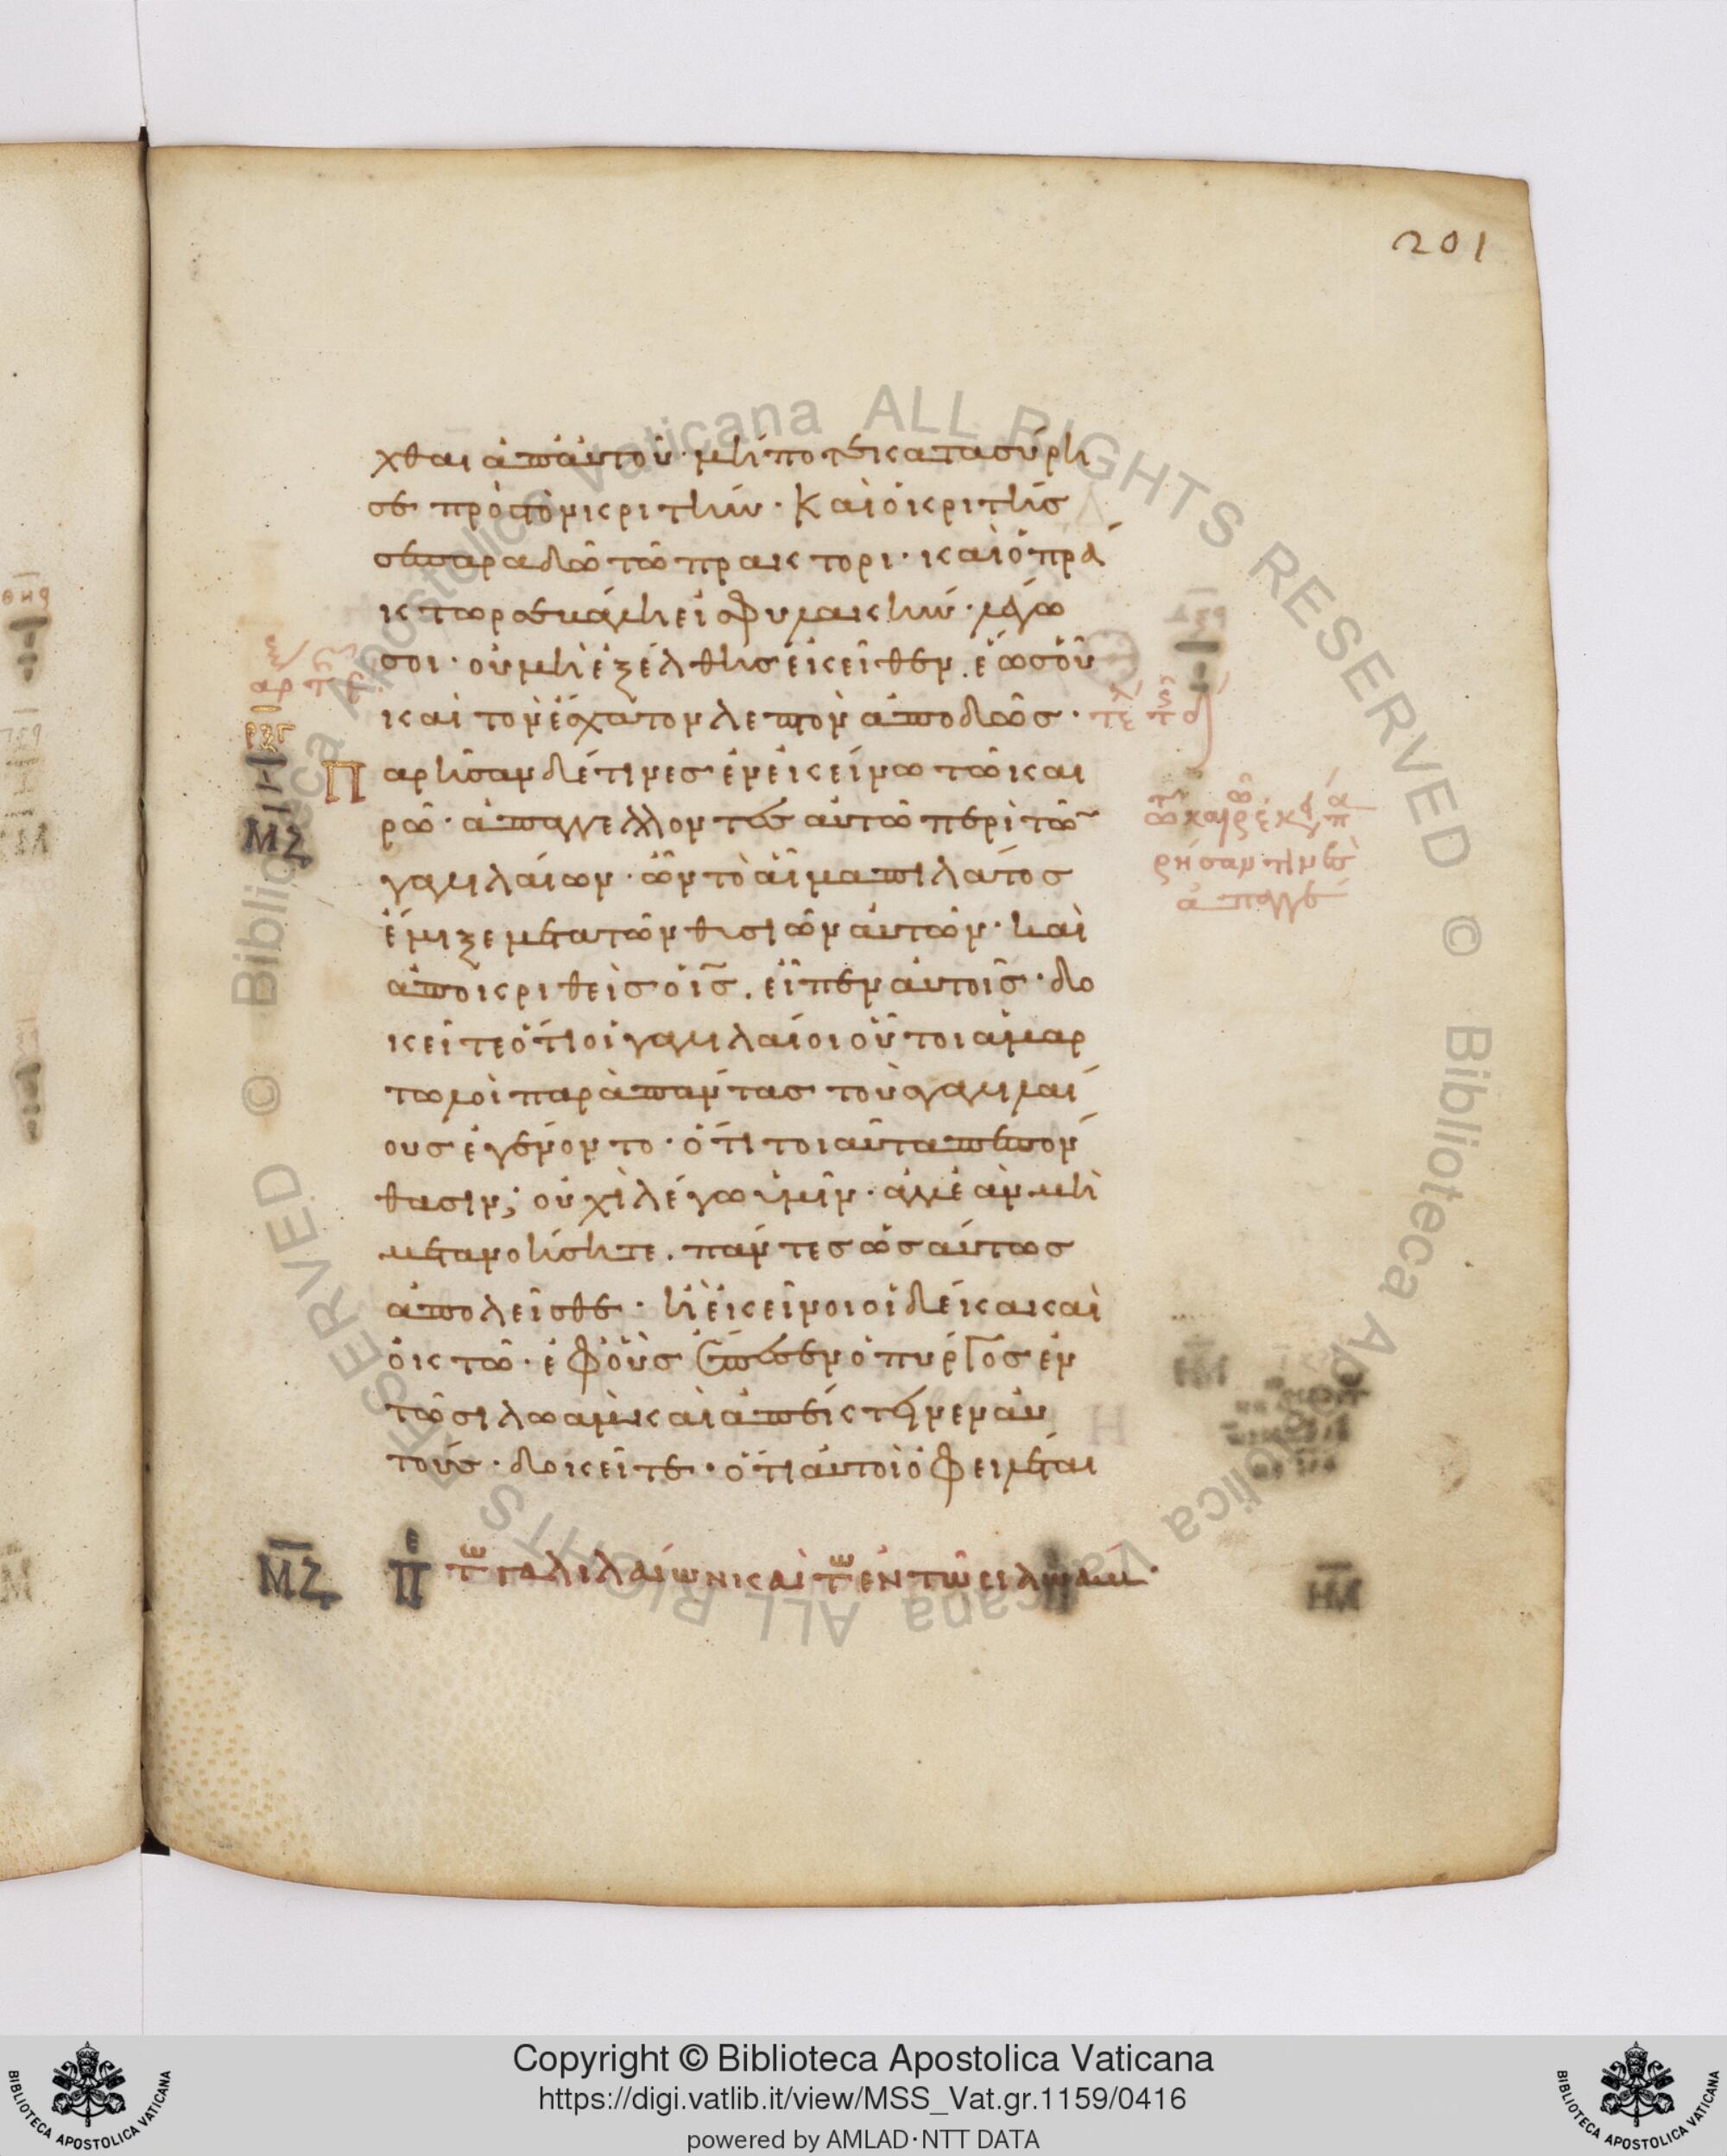 201
χθαι ἀπ αὐτοῦ· μήποτε κατασύρη
σε πρὸς τὸν κριτήν· Καὶ ὁ κριτής
σε παραδῶ τῶ πράκτορι· καὶ ὁ πρά
κτωρ σε βάλη εἰς φυλακήν· λέγω
σοι· οὐ μὴ ἐξέλθης ἐκεῖθεν. ἕως οὗ
καὶ τὸν ἔσχατον λεπτὸν ἀποδῶς·
Παρῆσαν δέ τινες ἐν ἐκείνω τῶ και
ρῶ· ἀπαγγέλλοντες αὐτῶ περὶ τῶ
γαλιλαίων· ὧν τὸ αἷμα πιλάτος
ἔμιξε μετὰ τῶν θυσιῶν αὐτῶν· καὶ
ἀποκριθεὶς ὁ ις. εἶπεν αὐτοῖς· δο
κεῖτε ὅτι οἱ γαλιλαίοι οὗτοι ἁμαρ
τωλοὶ παρὰ πάντας τοὺς γαλιλαί
ους ἐγένοντο· ὅτι τοιαῦτα πεπόν
θασιν; οὐχὶ λέγω ὑμῖν· ἀλλ ἐὰν μὴ
μετανοήσητε. πάντες ὡσαύτως
ἀπολεῖσθε· ἢ ἐκεῖνοι οἱ δέκα καὶ
ὀκτὼ· ἐφ οὓς ἔπεσεν ὁ πύργος ἐν
τῶ σιλωὰμ καὶ ἀπέκτεινεν αὐ
τούς· δοκεῖτε· ὅτι αὐτοὶ ὀφειλέται
ΜΖ
ΜΖ Πε τῶ γαλιλαίων καὶ τῶ ἐν τῶ σιλωάμ·
Copyright © Biblioteca Apostolica Vaticana
https://digi.vatlib.it/view/MSS_Vat.gr.1159/0416
powered by AMLAD·NTT DATA
BIBLIOTECA APOSTOLICA VATICANA
BIBLIOTECA APOSTOLICA VATICANA